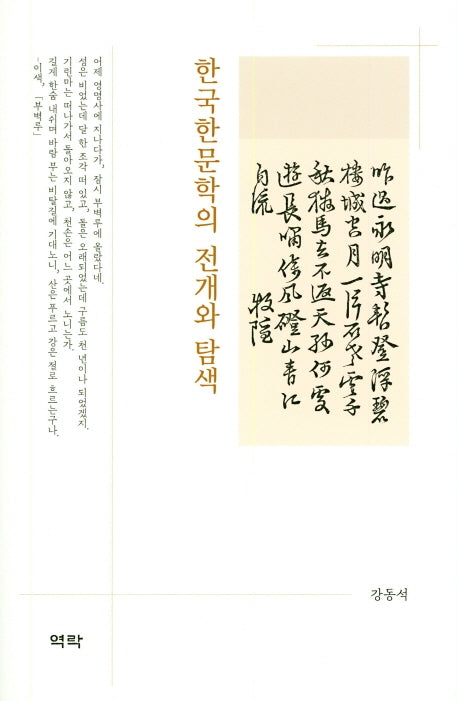 昨過永明寺暫登浮碧
樓城空月一片石老雲千
秋麟馬去不返天孫何處
遊長嘯倚風磴山青江
自流 牧隱
한국한문학의 전개와 탐색
어제 영명사에 지나다가, 잠시 부벽루에 올랐다네.
성은 비었는데 달 한 조각 떠 있고, 돌은 오래되었는데 구름도 천 년이나 되었겠지.
기린마는 떠나가서 돌아오지 않고, 천손은 어느 곳에서 노니는가.
길게 한숨 내쉬며 바람 부는 비탈길에 기대노니, 산은 푸르고 강은 절로 흐르는구나.
-이색, 「부벽루」
강동석
역락